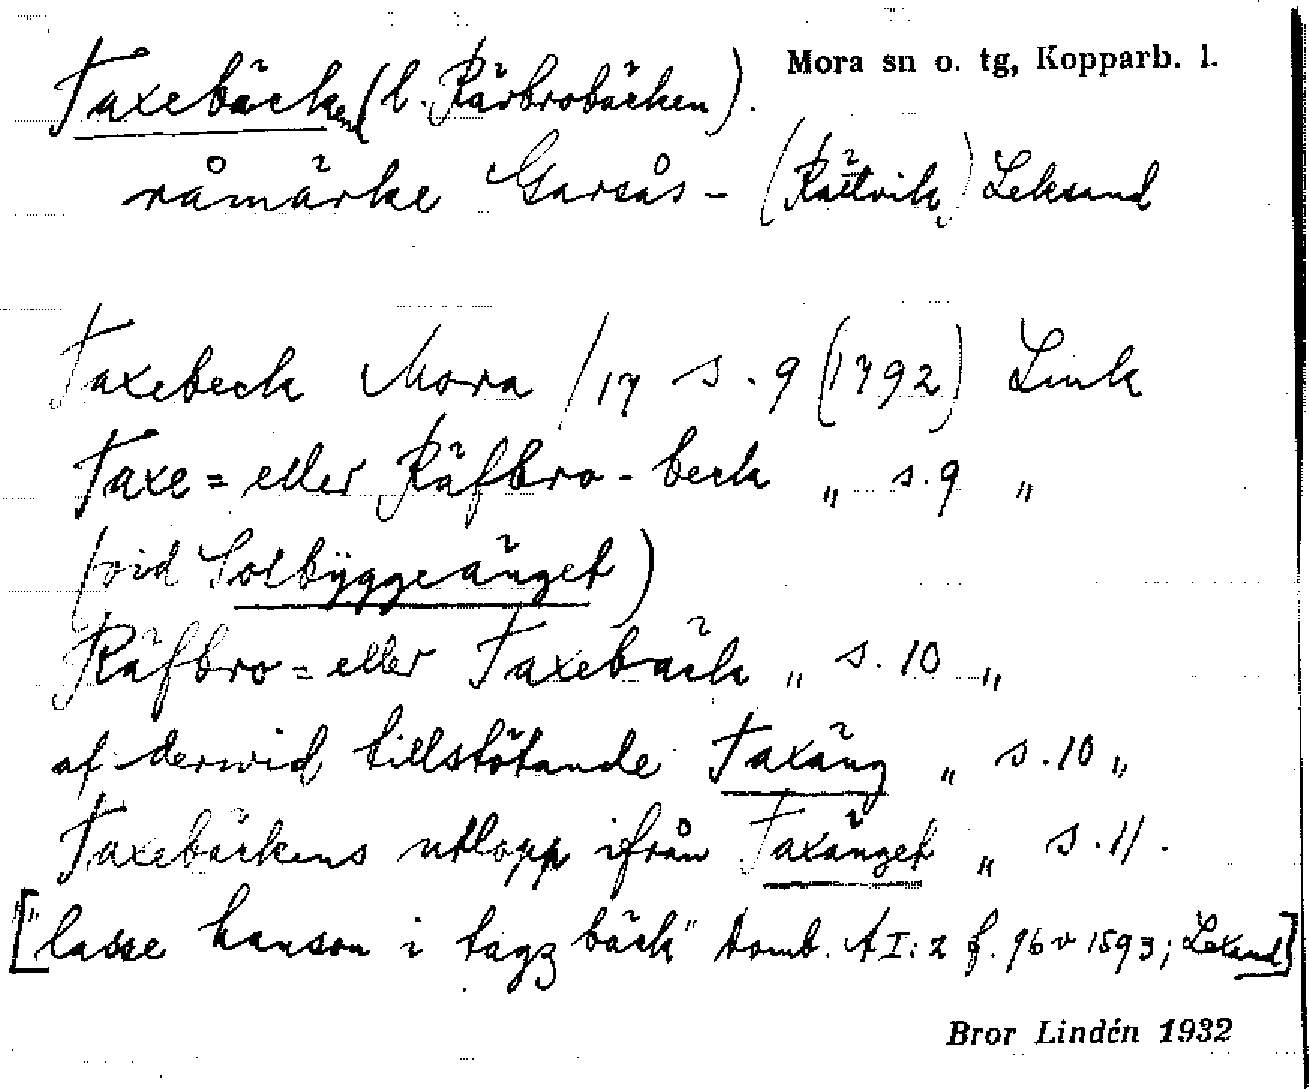 Taxebäcken (l. Rävbrobäcken).
Mora sn o. tg, Kopparb. l.
råmärke Garsås - (Rättvik) Leksand
Taxebeck Mora /17 s. 9 (1792) Link
Taxe= eller Räfbro - beck „ s. 9 „
(vid Solbyggeänget)
Räfbro = eller Taxebäck „ s. 10 „
af derwid tillstötande Taxäng „ s. 10 „
Taxebäckens utlopp ifrån Taxänget „ s. 11.
["lasse hanson i tagz bäck" Domb. A I: 2 f. 96 v 1593; Leksand]
Bror Lindén 1932